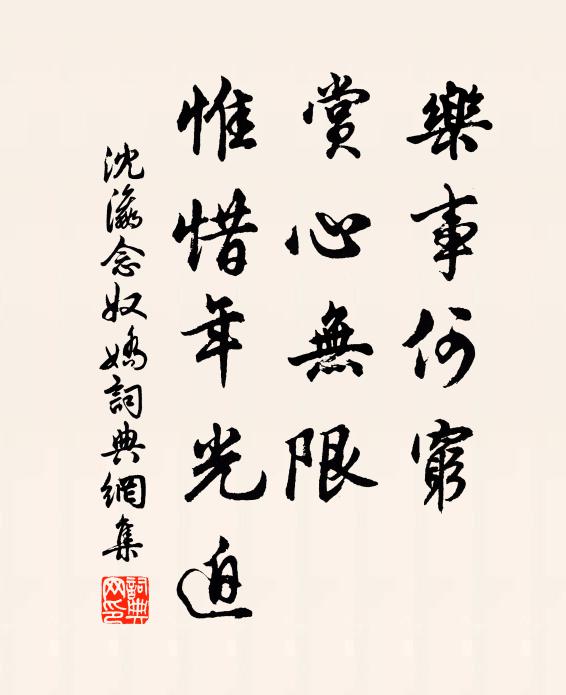 樂事何窮
賞心無限
惟惜年光迫
沈瀛念奴嬌詞典網集
詞典网印